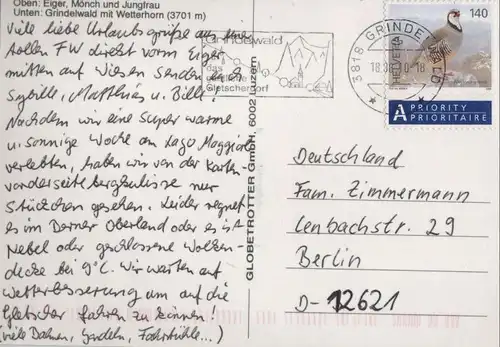 Oben: Eiger, Mönch und Jungfrau
Unten: Grindelwald mit Wetterhorn (3701 m)
Viele liebe Urlaubsgrüße aus einer
tollen FW direkt vorm Eiger
mitten auf Wiesen senden euch
Sybille, Matthias u. Bille!
Nachdem wir eine super warme
u. sonnige Woche am Lago Maggiore
verlebten, haben wir von der Karten-
vorderseite bergkulisse nur
Stückchen gesehen. Leider regnet
es im Berner Oberland oder es ist
Nebel oder geschlossene Wolken-
decke bei 9°C. Wir warten auf
Wetterbesserung um auf die
Gletscher fahren zu können!
(viele Bahnen, Gondeln, Fahrstühle...)
GLOBETROTTER GmbH, 6002 Luzern
Grindelwald
das
Gletscherdorf
3818 GRINDELWALD
HELVETIA
140
A PRIORITY
PRIORITAIRE
Deutschland
Fam. Zimmermann
Lenbachstr. 29
Berlin
D-12621